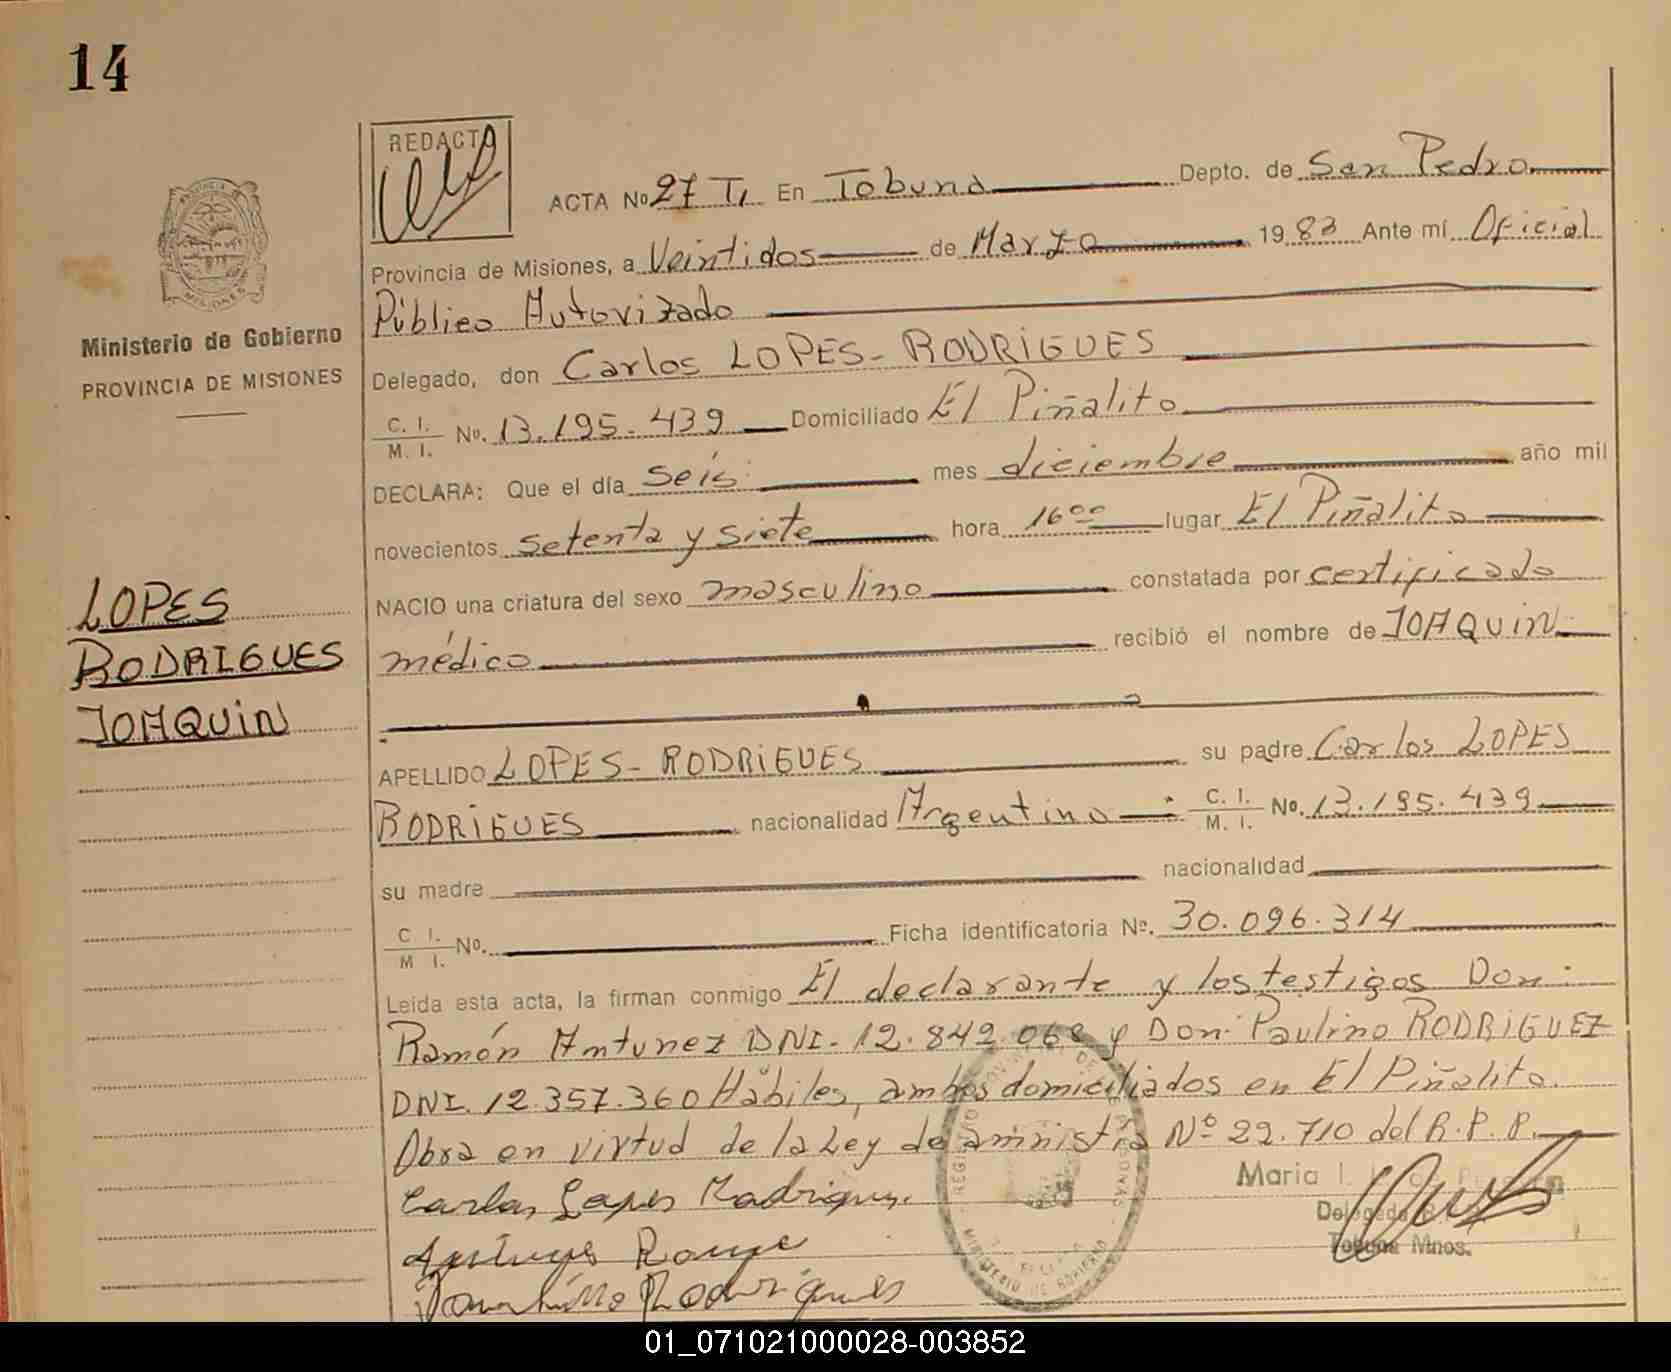 14
REDACTO
ACTA No 27 T, En Tobuna Depto. de San Pedro
Provincia de Misiones, a Veintidos de Marzo 1983 Ante mí Oficial
Público Autorizado
Delegado, don Carlos LOPES-RODRIGUES
C. I.
M. I. No. 13.195.439 Domiciliado El Piñalito
DECLARA: Que el día seis mes diciembre año mil
novecientos setenta y siete hora 16 00 lugar El Piñalito
NACIO una criatura del sexo masculino constatada por certificado
médico recibió el nombre de JOAQUIN
APELLIDO LOPES-RODRIGUES su padre Carlos LOPES
RODRIGUES nacionalidad Argentino C. I.
M. I. No. 13.195.439
su madre nacionalidad
C I.
M I. No. Ficha identificatoria No. 30.096.314
Leída esta acta, la firman conmigo El declarante y los testigos Don:
Ramón Antunez DNI. 12.842.068 y Don: Paulino RODRIGUEZ
DNI. 12.357.360 Hábiles, ambos domiciliados en El Piñalito.
Obra en virtud de la Ley de amnistia Nº 22.710 del R.P.P.
Carlos Lopes Rodrigues.
Rodrigues
Maria I.
Tobuna Mnos.
MINISTERIO DE GOBIERNO
PROVINCIA DE
MISIONES
Ministerio de Gobierno
PROVINCIA DE MISIONES
LOPES
RODRIGUES
JOAQUIN
01_071021000028-003852